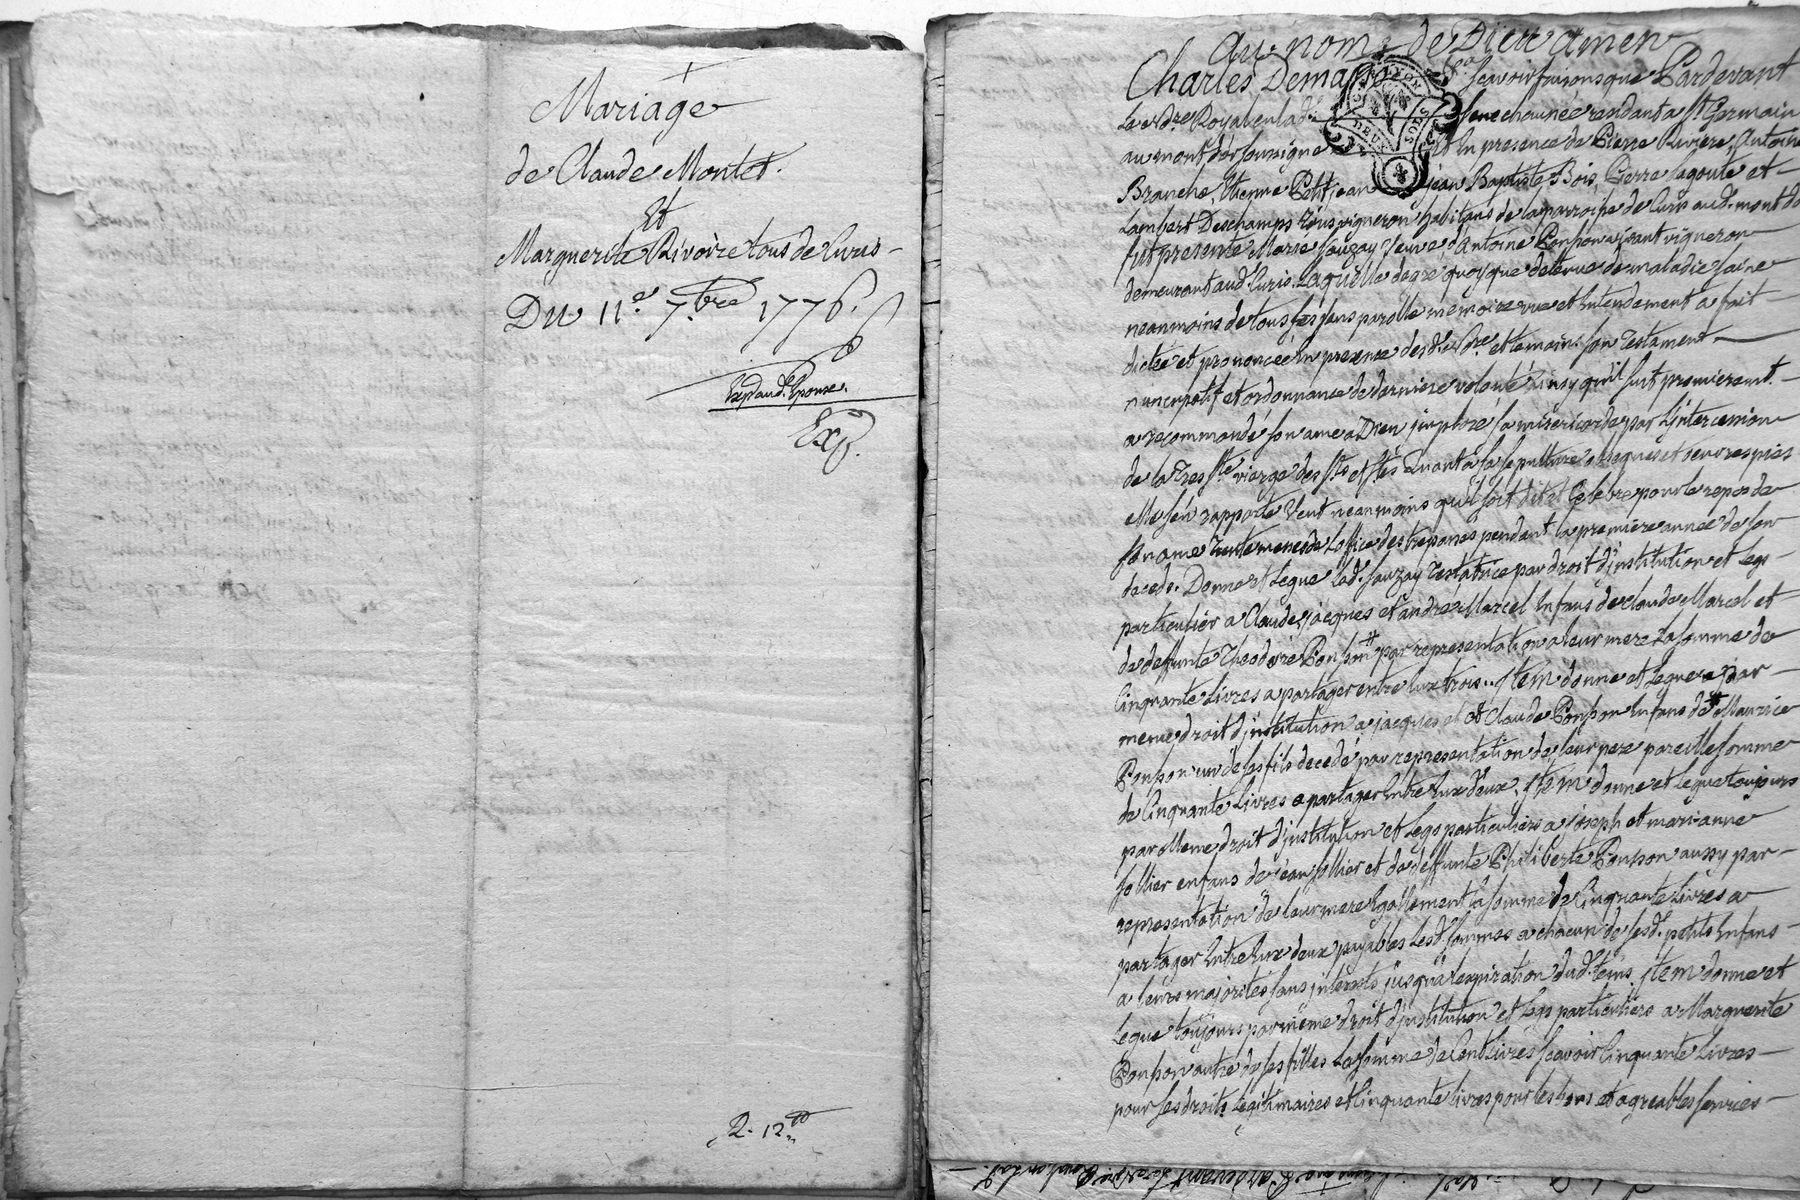 Mariage
de Claude Montet.
Et
Marguerite Rivoire tous de Curis
Du 11e. 7bre 1776.
Exp aud. Epoux.
Exp.
2. 12
Au nom de Dieu amen
Charles Demass scavoir faisons que Pardevant
Le Nore Royal en lad. Senechaussée residant a St Germain
au mont d'or soussigné Et En presence de Pierre Riviere, Antoine
Branche, Etienne Petit jean jean Baptiste Bois, Pierre Lagoute et
Lambert Deschamps tous vigneron habitans de la parroisse de Curis aud. mont do
fut presente Marie Sauzay veuve d'Antoine Ponson vivant vigneron
demeurant aud. Curis. Laquelle de gré quoyque detenue de maladie saine
neanmoins de tous ses sens parolle memoire vue et Entendement a fait
dicté et prononcée En presence desd. Nore. et temoins son Testament
nuncupatif et ordonnance de derniere volonté ainsy qu'il suit premieremt.
a recommandé son ame a Dieu implore sa misericorde par L'intercession
de la Tres Ste vierge des Sts et Stes Quant a sa sepulture obseques et oeuvres pies
Elle s'en rapporte Veut neanmoins qu'il soit dit et Celebré pour le repos de
son ame trente messes de L'office des trepassés pendant la premiere année de son
decede. Donne et Legue lad. Sauzay Testatrice par droit d'institution et legs
particulier a Claude, jacques et andre Marcel Enfans de Claude Marcel et
de deffunte Theodore Ponson par representation a leur mere La somme de
Cinquante Livres a partager entre Eux trois. Item donne et Legue par
meme droit d'institution a jacques et Claude Ponson Enfans de Maurice
Ponson un de ses fils decedé par representation de leur pere pareille somme
de Cinquante Livres a partager Entre Eux deux. Item donne et legue toujours
par meme droit d'institution et Legs particuliers a joseph et marianne
Jollier enfans de jean Jollier et de deffunte Philiberte Ponson aussy par
representation de leur mere Egallement la somme de Cinquante Livres a
partager Entre Eux deux payables Lesd. sommes a chacun de sesd. petits Enfans
a leurs majorités sans interests jusqu'a l'expiration dud. tems. Item donne et
Legue toujours par même droit d'institution et Legs particuliers a Marguerite
Ponson autre de ses filles La somme de Cent Livres scavoir Cinquante Livres
pour ses droits Legitimaires et Cinquante livres pour les bons et agreables services